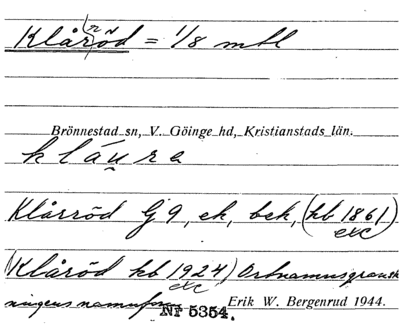 Klåröd = 1/8 mtl
Brönnestad sn, V. Göinge hd, Kristianstads län.
kláu̯ra
Klårröd G 9, ek, bek, (kb 1861)
etc
(Klåröd kb 1924,) Ortnamnsgransk
etc
ningens namnform Erik W. Bergenrud 1944.
Nr 5354.